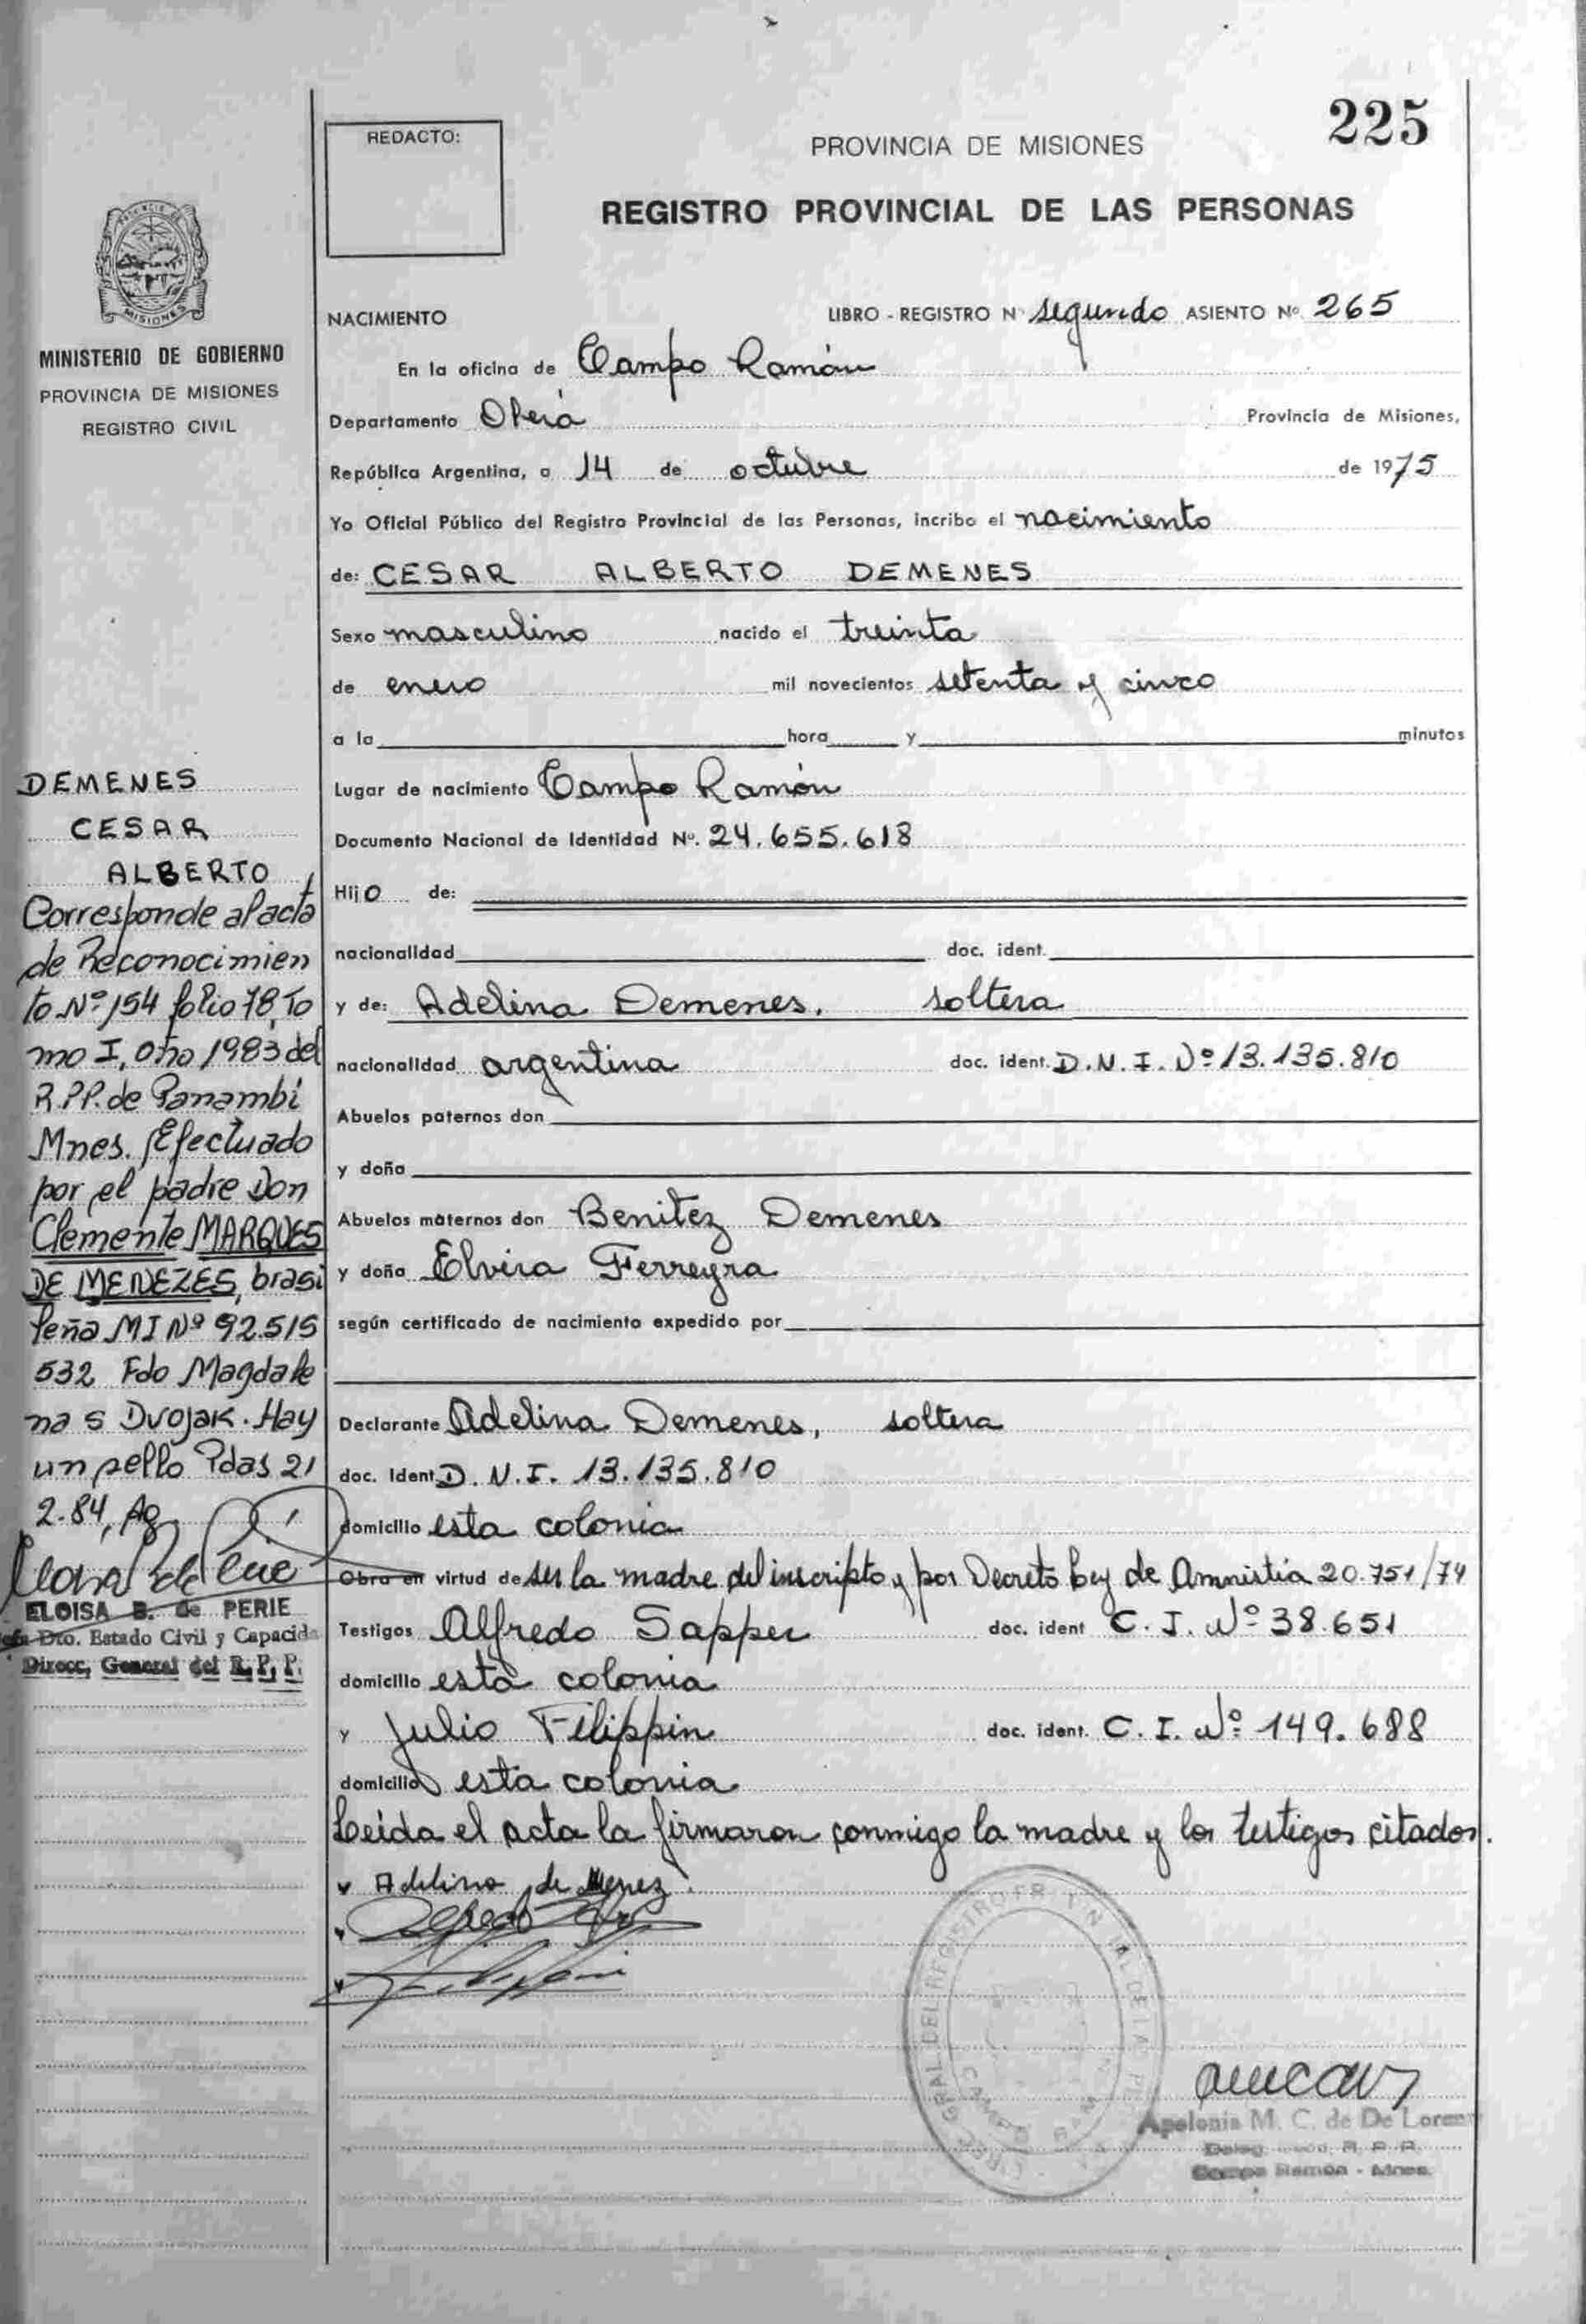 225
REDACTO:
PROVINCIA DE MISIONES
REGISTRO PROVINCIAL DE LAS PERSONAS
MISIONES
MINISTERIO DE GOBIERNO
PROVINCIA DE MISIONES
REGISTRO CIVIL
NACIMIENTO LIBRO - REGISTRO N segundo ASIENTO Nº 265
En la oficina de Campo Ramón
Departamento Oberá Provincia de Misiones,
República Argentina, a 14 de octubre de 1975
Yo Oficial Público del Registro Provincial de las Personas, incribo el nacimiento
de: CESAR ALBERTO DEMENES
Sexo masculino nacido el treinta
de enero mil novecientos setenta y cinco
a la hora y minutos
Lugar de nacimiento Campo Ramón
Documento Nacional de Identidad Nº. 24.655.618
Hijo de:
nacionalidad doc. ident.
y de: Adelina Demenes, soltera
nacionalidad argentina doc. ident. D.N.I. Nº 13.135.810
Abuelos paternos don
y doña
Abuelos maternos don Benitez Demenes
y doña Elvira Ferreyra
según certificado de nacimiento expedido por
Declarante Adelina Demenes, soltera
doc. Ident. D.N.I. 13.135.810
domicilio esta colonia
Obra en virtud de ser la madre del inscripto y por Decreto Ley de Amnistía 20.751/74
Testigos Alfredo Sapper doc. ident C.I. Nº 38.651
domicilio esta colonia
y Julio Filippin doc. ident. C.I. Nº 149.688
domicilio esta colonia
Leída el acta la firmaron conmigo la madre y los testigos citados.
Adelina de Menez
Apolonia M. C. de De Loren
Campo Ramón - Mnes.
DEMENES
CESAR
ALBERTO
Corresponde al acta
de Reconocimien
to Nº 154 folio 78, To
mo I, año 1983 del
R.P.P. de Panambí
Mnes. Efectuado
por el padre Don
Clemente MARQUES
DE MENEZES, brasi
leña MI Nº 92.515
532 Fdo Magdale
na S Dvojak. Hay
un sello Pdas 21
2-84, Ag
ELOISA B. de PERIE
Jefa Dto. Estado Civil y Capacid
Direcc, General del R. P. P.